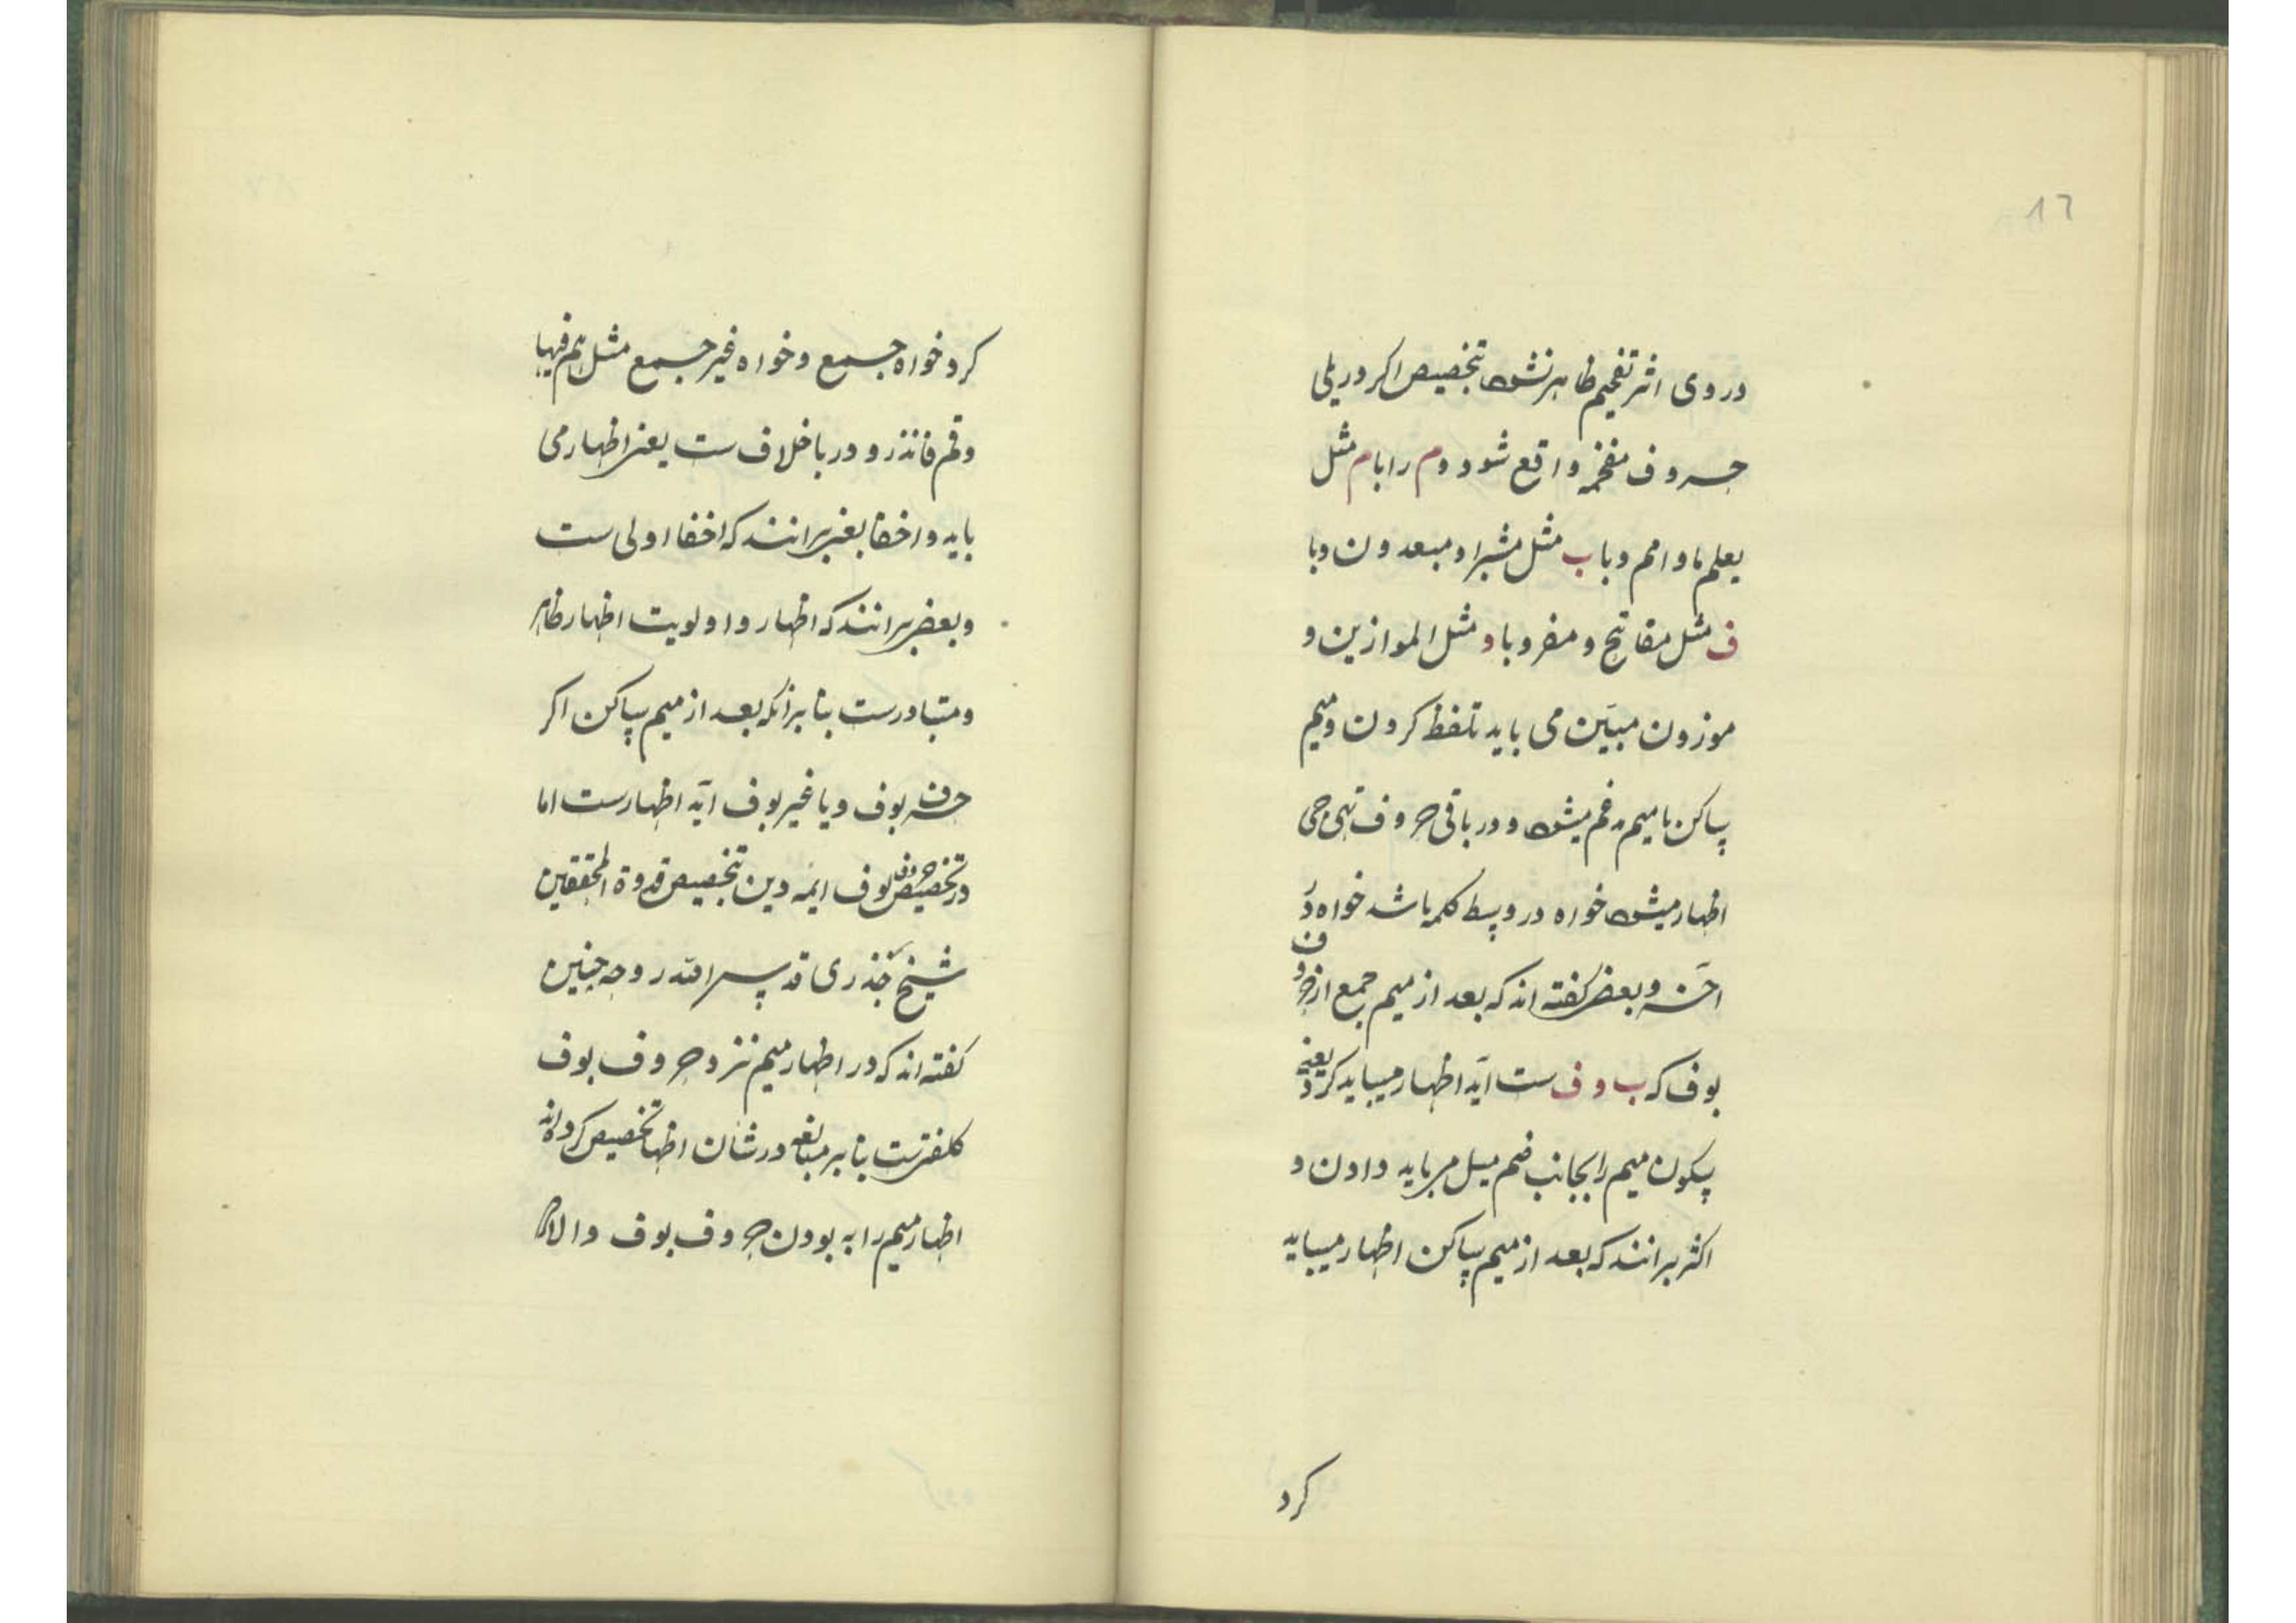 ١٦
در وی اثر تفخیم ظاهر نشود بتخصیص اکر در پلی
حروف مفخمه واقع شود و م را با م مثل
یعلم ما و امم و با ب مثل مشبرا و مبعدون و با
ف مثل مفاتیح و مفر و با و مثل الموازین و
موزون مبیّن می باید تلفظ کردن و میم
ساکن با میم مدغم میشود و در باقی حروف تهجی
اظهار میشود خواه در وسط کلمه باشد خواه در
آخر و بعضی کفته اند که بعد از میم جمع از حروف
بوف که ب و ف ست آیه اظهار میباید کرد یعنی
سکون میم را بجانب ضم میل می باید دادن و
اکثر برانند که بعد از میم ساکن اظهار میباید
کرد
کرد خواه جمع و خواه غیر جمع مثل هم فیها
و قم فانذر و در با خلاف ست یعنی اظهار می
باید و اخفا بعضی برانند که اخفا اولی ست
و بعضی برانند که اظهار و اولویت اظهار ظاهر
و متبادرست بنا برانکه بعد از میم ساکن اکر
حرف بوف و یا غیر بوف آیه اظهارست اما
در تخصیص حروف بوف ایمه دین بتخصیص قدوة المحققین
شیخ جذری قدس سر الله روحه چنین
کفته اند که در اظهار میم نزد حروف بوف
کلفتی ست بنا بر مبالغه در شان اظهار تخصیص کرده اند
اظهار میم را به بودن حروف بوف و الا اکر